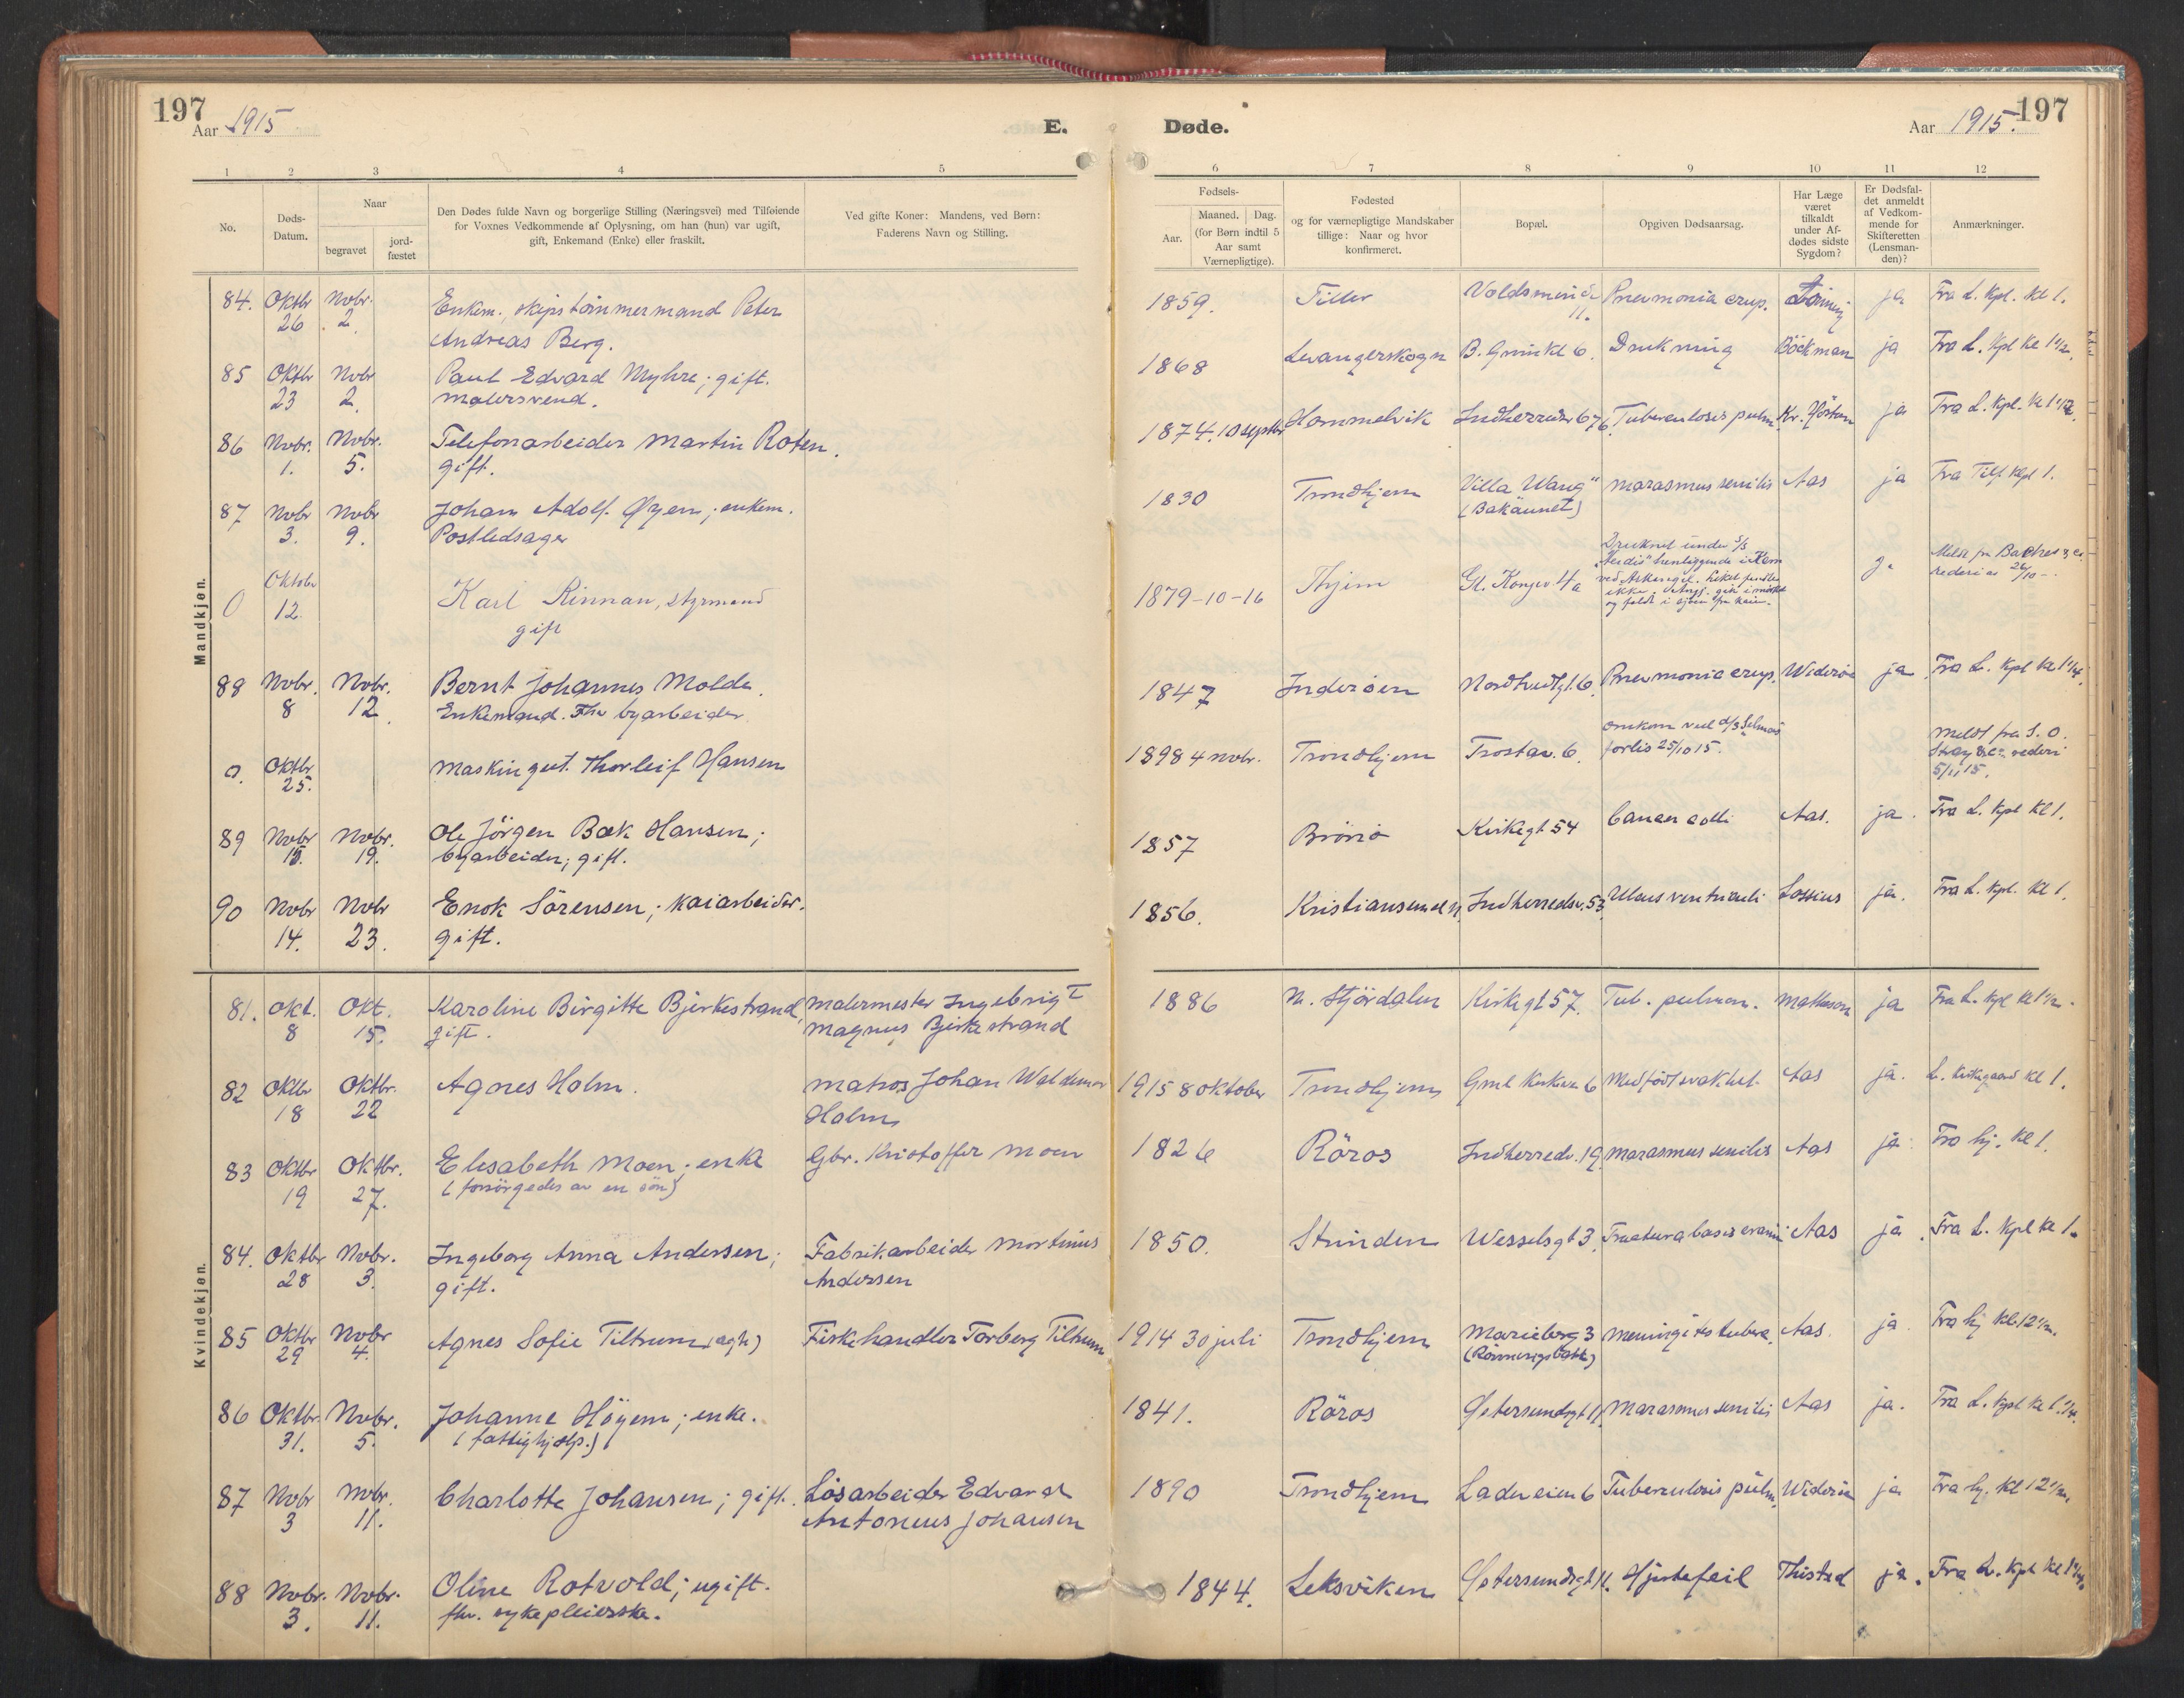 197
Aar 1915
E.
Døde.
Aar 1915.
197
1 2 3 4 5 6 7 8 9 10 11 12
No.
Døds-
Datum.
Naar
begravet
jord-
fæstet
Den Dødes fulde Navn og borgerlige Stilling (Næringsvei) med Tilføiende
for Voxnes Vedkommende af Oplysning, om han (hun) var ugift,
gift, Enkemand (Enke) eller fraskilt.
Ved gifte Koner: Mandens, ved Børn:
Faderens Navn og Stilling.
Fødsels-
Aar.
Maaned. Dag.
(for Børn indtil 5
Aar samt
Værnepligtige).
Fødested
og for værnepligtige Mandskaber
tillige: Naar og hvor
konfirmeret.
Bopæl.
Opgiven Dødsaarsag.
Har Læge
været
tilkaldt
under Af-
dødes sidste
Sygdom?
Er Dødsfal-
det anmeldt
af Vedkom-
mende for
Skifteretten
(Lensman-
den)?
Anmærkninger.
Mandkjøn.
84. Oktbr Novbr. Enkem., skipstømmermand Peter 1859. Tiller Pneumonia crup. ja Fra L. Kpl. Kl 1.
26 2. Andreas Berg. 11.
85 Oktbr Nvbr Paul Edvard Myhre; gift. 1868 Levangerskogn Drukning Böckman ja Fra L. Kpl Kl 1 1/2.
23 2. Malersvend.
86 Nvbr. Nvbr. Telefonarbeider Martin Roten. 1874. 10 septbr Hommelvik Tuberculosis pulm. ja Fra L. Kpl. Kl 1 1/2.
1. 5. gift.
87 Nvbr Nvbr Johan Adolf Øyen; enkem. 1830 Trondhjem Villa Wang" Marasmus senilis Aas ja
3. 9. Postledsager (Bakaunet)
0 Oktobr Karl Rinnan, styrmand 1879-10-16 Thjem Gl. Kongev 4a Druknet under
12. gift
88 Nvbr. Nvbr. Bernt Johannes Molde. 1847 Inderøen Pneumonia crup. Widerøe ja Fra L. Kpl Kl 1 1/4.
8 12. Enkemand. Fhv byarbeider
0. Oktbr Maskingut. Thorleif Hansen 1898 4 nvbr. Trondhjem Trostav. 6. Omkom ved d/s Selmas
25. forlis 25/10 15. Meldt fra S. O.
5/11 15.
89 Nvbr Nvbr. Ole Jörgen Bæk Hansen; 1857 Brönö Kirkegt 54 Cancer colli Aas. ja. Fra L. Kpl Kl 1.
15. 19. byarbeider; gift.
90 Nvbr Nvbr Enok Sörensen; Kaiarbeider. 1856. Kristiansund N. Indherredsv. 53 Ulcus ventriculi Lossius ja. Fra L. Kpl. Kl 1.
14. 23. gift.
Kvindekjøn.
81. Okt. Okt. Karoline Birgitte Bjerkestrand, Malermester Ingebrigt 1886 N. Stjördalen Kirkegt 57. Tub. pulmon. ja Fra L. Kpl Kl 1 1/2.
8 15. gift. Magnus Bjerkestrand
82 Oktbr Oktbr. Agnes Holm. Matros Johan Waldemar 1915 8 oktober Trondhjem Medfødt svakhet. Aas ja. L. Kirkegaard Kl 1.
18 22 Holm
83 Oktbr Oktbr. Elisabeth Moen; enke Gbr. Kristoffer Moen 1826 Röros Indherredv. 19. Marasmus senilis Aas ja Fra hj. Kl 1.
19 27. (forsörgedes av en sön)
84. Oktbr Nvbr. Ingeborg Anna Andersen; Fabrikarbeider Martinus 1850. Strinden Wesselsgt 3. Fractura basis cranii Aas ja. Fra L. Kpl Kl 1.
28 3. gift. Andersen
85 Oktbr Nvbr Agnes Sofie Tiltrum (egte) Fiskehandler Torberg Tiltrum 1914 30 juli Trondhjem Marieborg 3 Meningitis tuberc. Aas. ja. Fra hj Kl. 12 1/2.
29 4.
86 Oktbr. Nvbr. Johanne Höyem; enke. 1841. Röros Östersundsgt 11. Marasmus senilis Aas ja. Fra L. Kpl Kl 1 1/4.
31. 5. (fattighjelp.)
87 Nvbr Nvbr. Charlotte Johansen; gift. Lösarbeider Edvard 1890 Trondhjem Ladeveien 6 Tuberculosis pulm. Widerøe ja Fra hj. Kl 12 1/2.
3 11. Antonius Johansen
88 Nvbr. Nvbr. Oline Rotvold; ugift. 1844. Leksviken Östersundsgt 11. Hjertefeil Thisted ja. Fra L. Kpl Kl 1 1/4.
3. 11. fhv. sykepleierske.